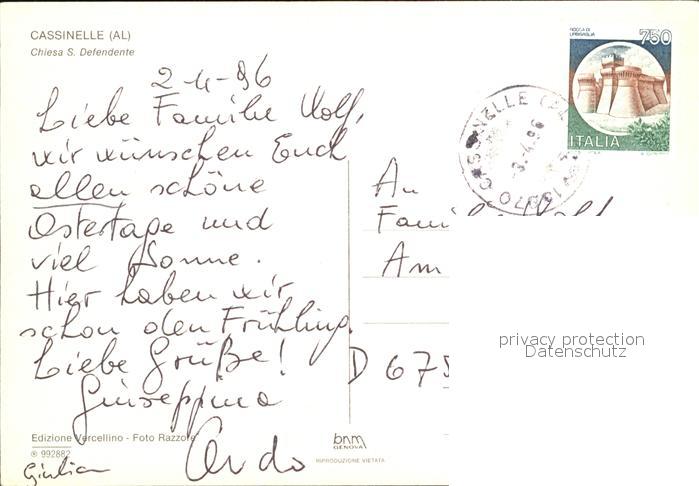 CASSINELLE (AL)
Chiesa S. Defendente
ROCCA DI
URBISAGLIA
750
ITALIA
CASSINELLE (AL
-3.4.96
15070
2-4-96
Liebe Familie Wolf,
wir wünschen Euch
allen schöne
Ostertage und
viel Sonne.
Hier haben wir
schon den Frühling.
Liebe Grüße!
Giuseppina
Guido
Giulian
An
Familie Wolf
Am
D 675
privacy protection
Datenschutz
Edizione Vercellino - Foto Razzore
® 992882
bnm
GENOVA
RIPRODUZIONE VIETATA